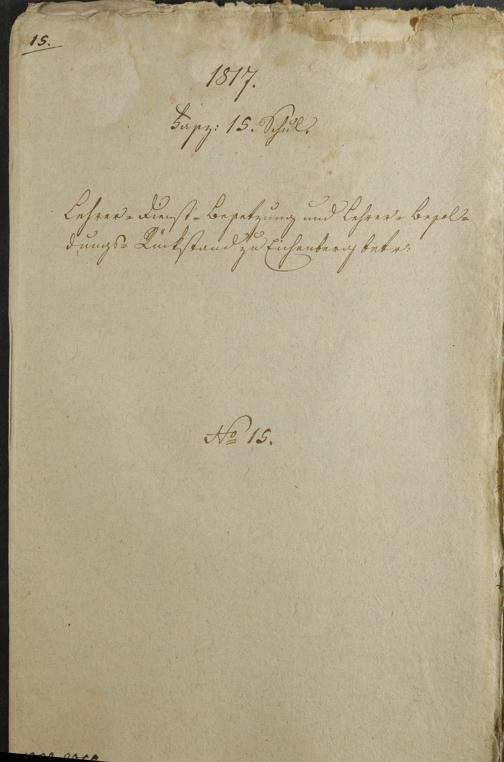 15.
1817.
Fasz: 15. Schul.
Lehrer-Dienst-Besetzung und Lehrer-Besol-
dungs-Rückstand zu Eichenberg betr:
No 15.